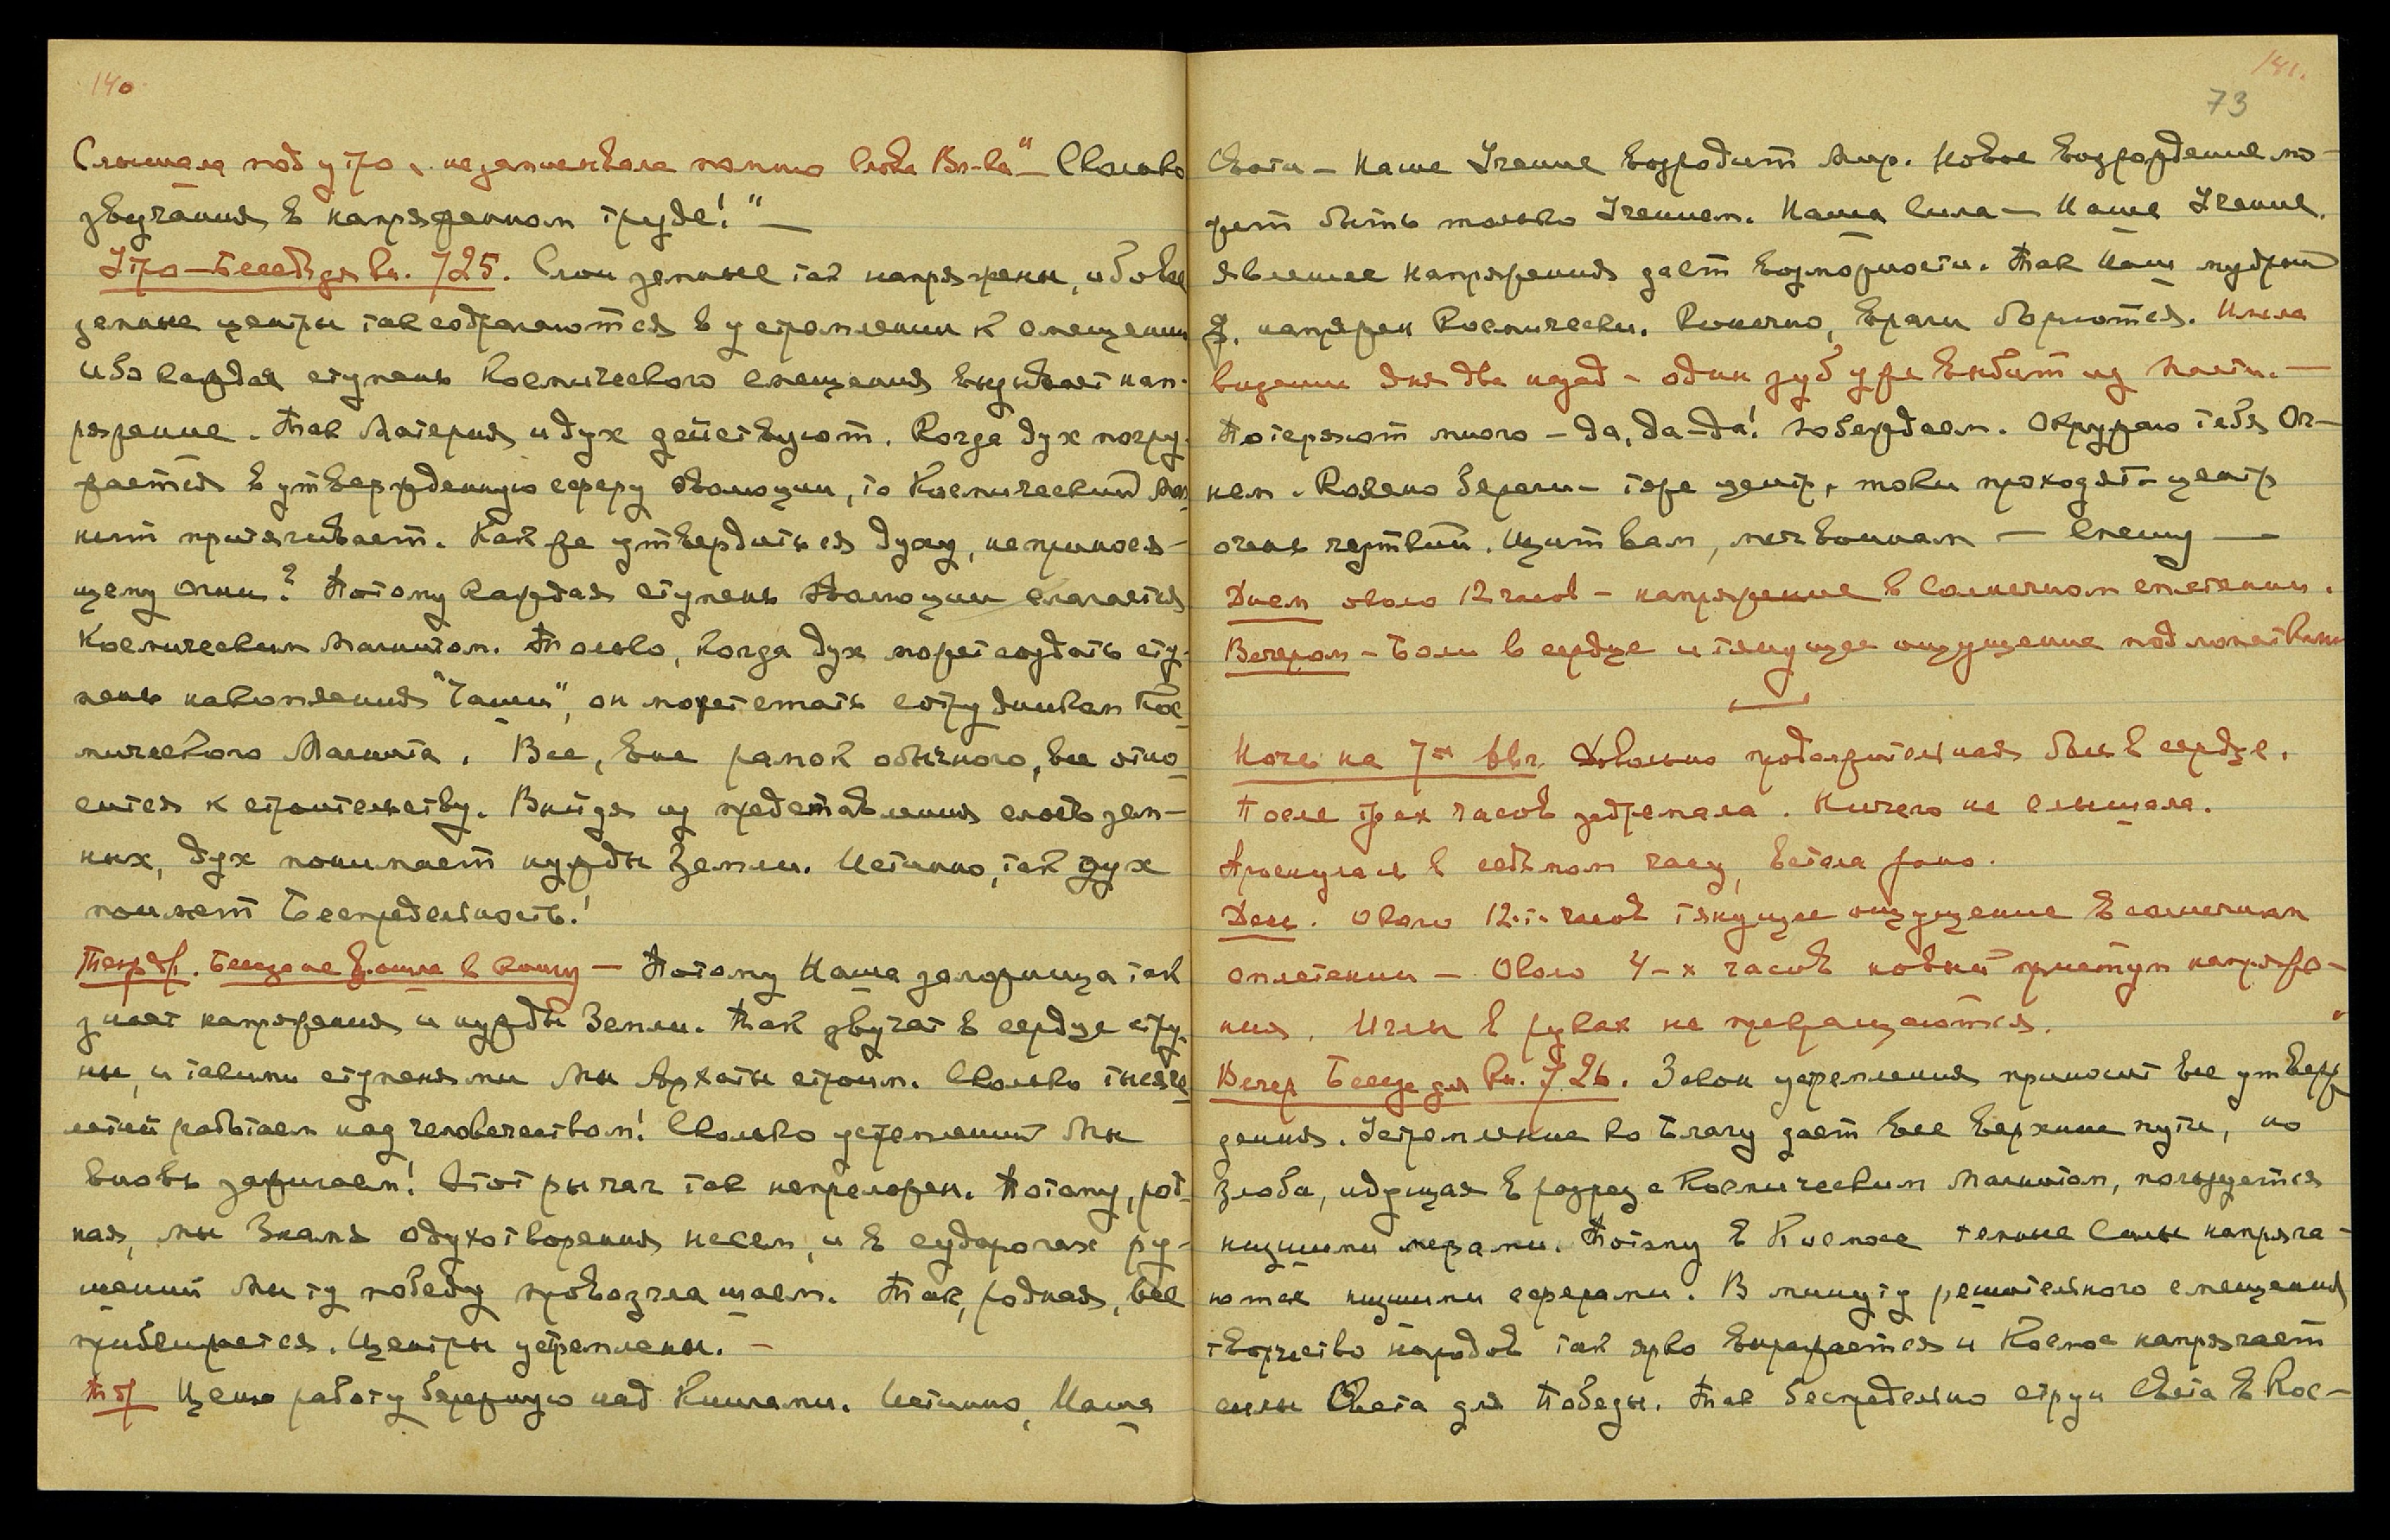 140.
Слышала под утро, незапомнила точно слова Вл-ки "– Сколько
звучания в напряженном труде!" –
Утро – Беседа для Кн. 725. Слои земные так напряжены, ибо все
земные центры так содрогаются в устремлении к смещению
ибо каждая ступень Космического смещения вызывает нап-
ряжение. Так Материя и дух действуют. Когда дух погру-
жается в утвержденную сферу эволюции, то Космический Маг-
нит притягивает. Как же утвердиться духу, непринося-
щему огни? Потому каждая ступень эволюции слагается
Космическим Магнитом. Только, когда дух может создать сту-
пень накопления "Чаши", он может стать сотрудником Кос-
мического Магнита. Все, вне рамок обычного, все отно-
сится к строительству. Выйдя из представления слоев зем-
ных, дух понимает нужды Земли. Истинно, так дух
поймет Беспредельность!
Беседа не вошла в Книгу – Потому Наша заложница так
знает напряжения и нужды Земли. Так звучат в сердце стру-
ны, и такими ступенями Мы Архаты строим. Сколько тысяче-
летий работаем над человечеством! Сколько устремлений Мы
вновь зажигаем! Этот рычаг так непреложен. Потому, род-
ная, мы Знамя одухотворения несем, и в судорогах ру-
шений Мы ту победу провозглашаем. Так, родная, все
приближается. Центры устремлены. –
Ценю работу бережную над Книгами. Истинно, Наша
141.
73
Свати – Наше Учение возродит Мир. Новое возрождение мо-
жет быть только Учением. Наша Сила – Наше Учение.
явление напряжения дает возможности. Так Наш мудрый
Ф. напряжен Космически. Конечно, враги борются. Имела
видение дня два назад – один зуб уже выбит из пасти. –
Потеряют много – да, да-да! Побеждаем. Окружаю тебя Ог-
нем. Колено береги – тоже центр, токи проходят – центр
очень чуткий. Щит вам, меч воинам – спешу –
Днем около 12 часов – напряжение в Солнечном сплетении.
Вечером – Боли в сердце и тянущее ощущение под лопатками
Ночь на 7ое Авг. Довольно продолжительная боль в сердце.
После трех часов задремала. Ничего не слышала.
Проснулась в седьмом часу, встала рано.
День. Около 12-ти часов тянущее ощущение в солнечном
сплетении – Около 4-х часов новый приступ напряже-
ния. Иглы в руках не прекращаются.
Вечер Беседа для Кн. 726. Закон устремления приносит все утверж-
дения. Устремление ко Благу дает все верхние пути, но
Злоба, идущая в разрез с Космическим Магнитом, пользуется
низшими мерами. Потому в Космосе темные Силы напряга-
ются низшими сферами. В минуту решительного смещения
творчество народов так ярко выражается и Космос напрягает
силы Света для Победы. Так беспредельно струи Света в Кос-